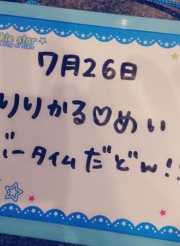 7月26日
りりかる♡めい
バータイムだどん!!